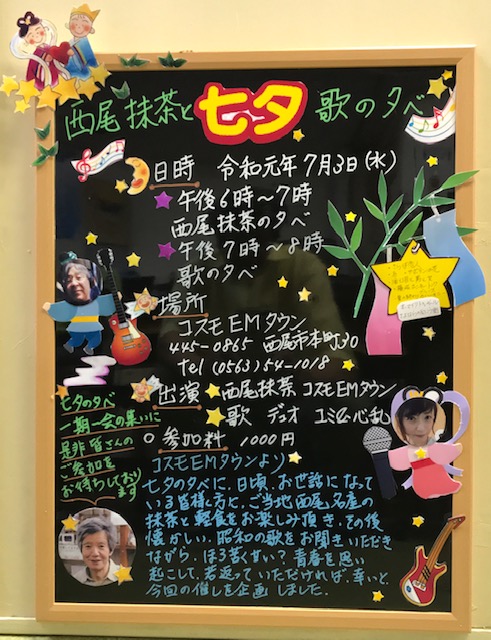 西尾抹茶と七夕歌の夕べ
日時 令和元年7月3日(水)
午後6時〜7時
西尾抹茶の夕べ
午後7時〜8時
歌の夕べ
場所
コスモEMタウン
445-0865 西尾市本町30
tel (0563) 54-1018
出演 西尾抹茶 コスモEMタウン
歌 デュオ ユミ&心乱
参加料 1000円
七夕の夕べ
一期一会の集いに
是非皆さんの
ご参加を
お待ちしており
ます
コスモEMタウンより
七夕の夕べに、日頃、お世話になって
いる皆様方と、ご当地西尾名産の
抹茶と軽食をお楽しみ頂き、その後
懐かしい、昭和の歌をお聞きいただき
ながら、ほろ苦く甘い？青春を思い
起こして、若返っていただければ、幸いと、
今回の催しを企画しました。